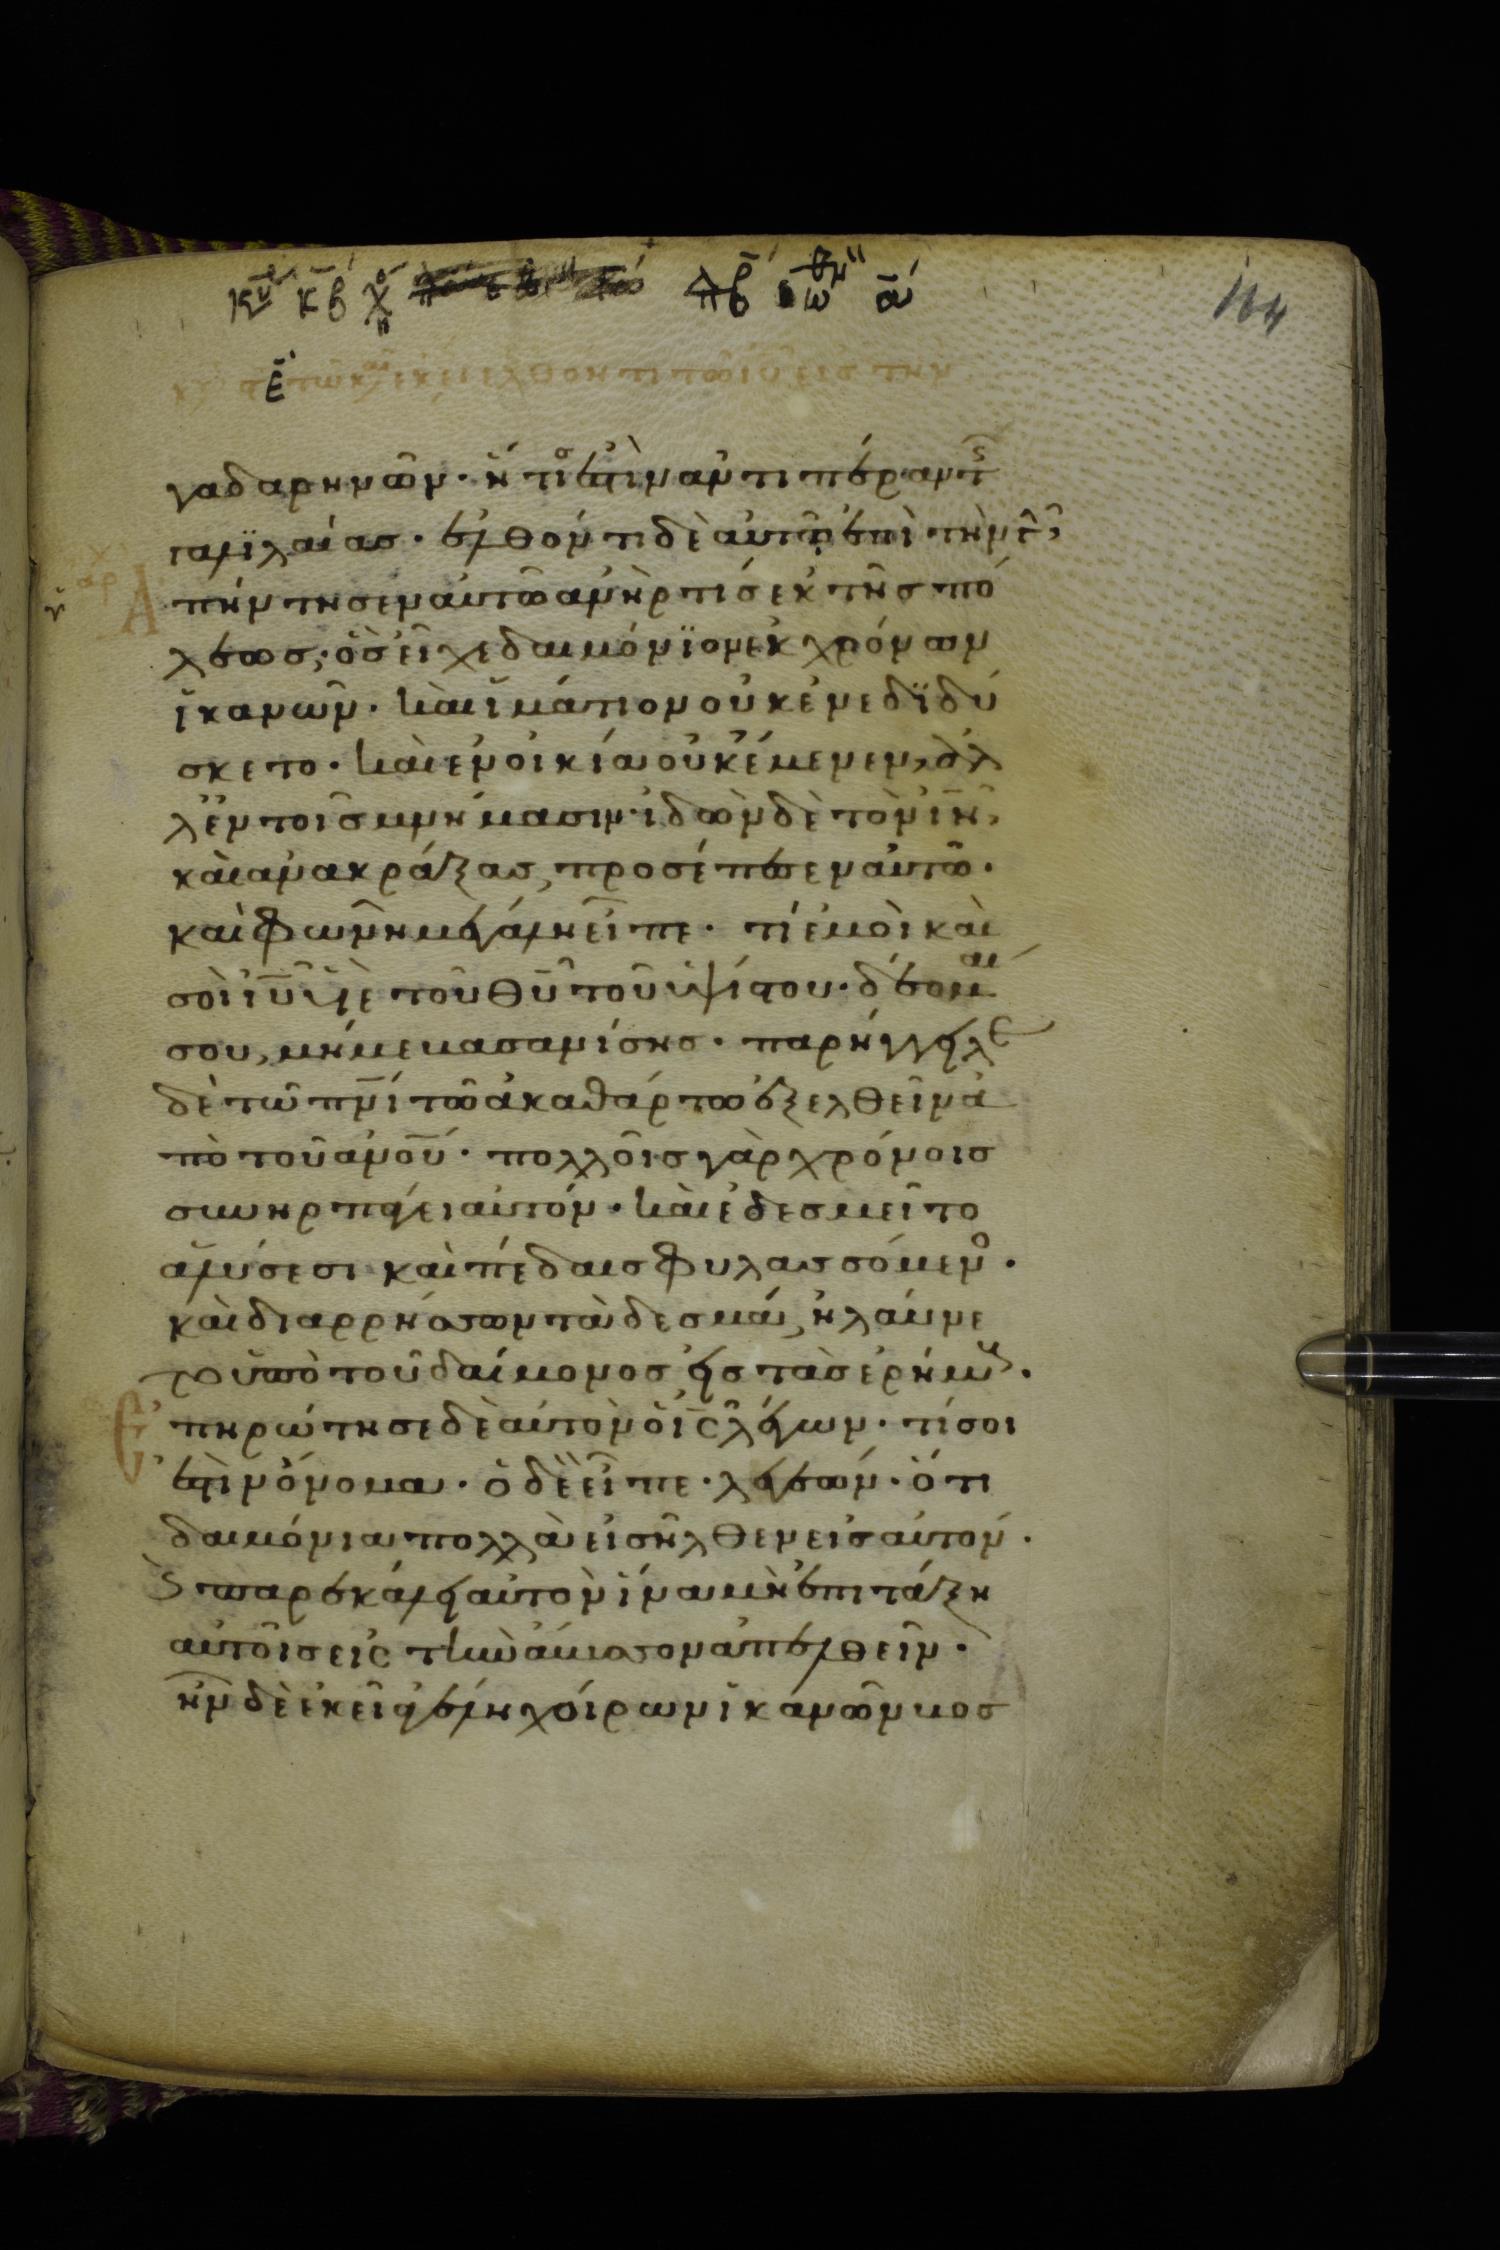 164
γαδαρηνῶν· ἥτις ἐστὶν ἀντιπέραν τῆς
γαλϊλαίασ· ἐλθόντι δὲ αὐτῷ ἐπὶ τὴν γῆν,
Ἀπήντησεν αὐτῶ ἀνὴρ τισ ἐκ τῆσ πό
λεωσ, ὃσ εἶχε δαιμόνϊον ἐκ χρόνων
ἱκανῶν· καὶ ἱμάτιον οὐκ ἐνεδϊδύ
σκετο· καὶ ἐν οἰκία οὐκ ἔμενεν, ἀλ
λ' ἐν τοῖσ μνήμασιν· ἰδὼν δὲ τὸν ἰ̅ν̅,
καὶ ἀνακράξασ, προσέπεσεν αὐτῶ·
καὶ φωνῆ μεγάλη εἶπε· τί ἐμοὶ καὶ
σοὶ ἰ̅υ̅ υἱὲ τοῦ θ̅υ̅ τοῦ ὑψίστου· δέομαί
σου, μή με βασανίσησ· παρήγγειλε
δὲ τῶ π̅ν̅ι̅ τῶ ἀκαθάρτω ἐξελθεῖν ἀ
πὸ τοῦ α̅ν̅ο̅υ̅· πολλοῖσ γὰρ χρόνοισ
συνηρπάκει αὐτόν· καὶ ἐδεσμεῖτο
ἁλύσεσι καὶ πέδαισ φυλασσόμενος·
καὶ διαρρήσσων τὰ δεσμά, ἠλαύνε
το ὑπὸ τοῦ δαίμονοσ εἰσ τὰσ ἐρήμους·
Ἐπηρώτησε δὲ αὐτὸν ὁ ἰ̅ς̅ λέγων· τί σοι
ἐστὶν ὄνομα· ὁ δὲ εἶπε· λεγεών· ὅτι
δαιμόνια πολλὰ εἰσῆλθεν εἰσ αὐτόν·
ϗ παρεκάλει αὐτὸν ἵνα μὴ ἐπιτάξη
αὐτοῖσ εἰς τὴν ἄβυσσον ἀπελθεῖν·
ἦν δὲ ἐκεῖ ἀγέλη χοίρων ἱκανῶν βοσ